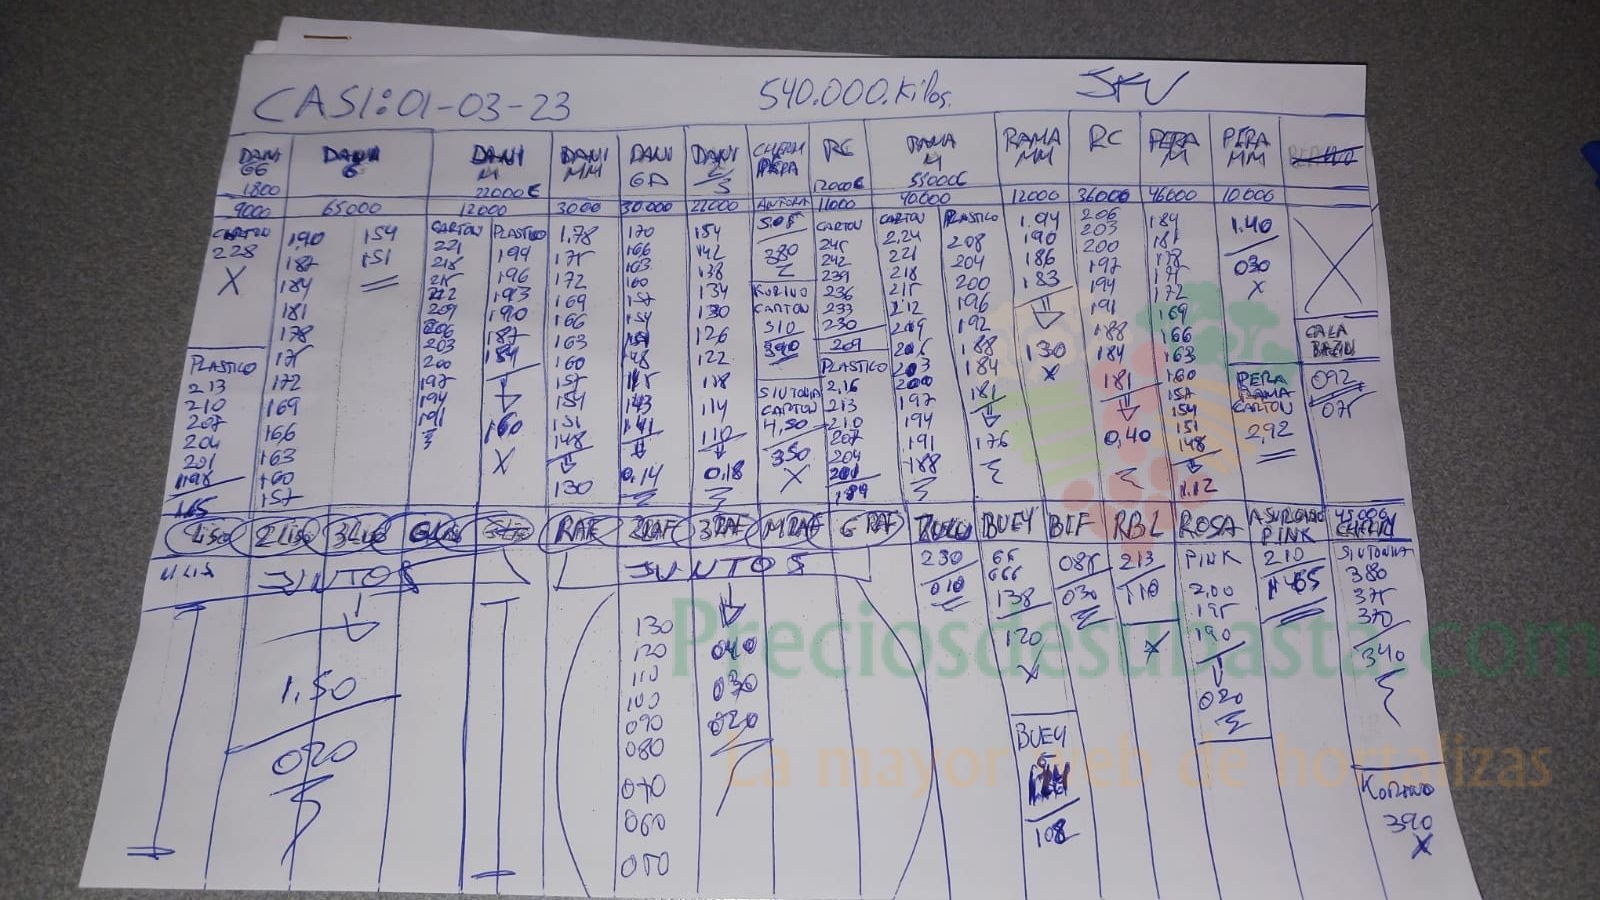 CASI: 01-03-23
540.000.Kilos.
DANI GG 1800
9000
CARTON
228
X
PLASTICO
213
210
207
204
201
198
165
DANI G
65000
190
187
184
181
178
175
172
169
166
163
160
157
154
151
DANI M
22000€
12000
CARTON
221
218
215
212
209
206
203
200
197
194
191
PLASTICO
199
196
193
190
187
184
160
X
DANI MM
3000
1.78
175
172
169
166
163
160
157
154
151
148
130
DANI GA
30.000
170
166
163
160
157
154
151
148
145
143
141
0,14
DANI
22000
154
142
138
134
130
126
122
118
114
110
0,18
CHERRY PERA
380
KORINO
CARTON
510
390
SINTONIA
CARTON
4,50
350
X
RC
12000€
11000
CARTON
245
242
239
236
233
230
209
PLASTICO
2,16
213
210
207
204
201
189
RAMA M
55000€
40000
CARTON
2,24
221
218
215
2,12
209
206
203
200
197
194
191
188
PLASTICO
208
204
200
196
192
188
184
181
176
RAMA MM
12000
1.94
190
186
183
130
X
RC
36000
206
203
200
197
194
191
188
184
181
0,40
PERA M
46000
184
181
178
175
172
169
166
163
160
157
154
151
148
1.12
PERA MM
10.000
1.40
030
X
PERA
RAMA
CARTON
2,92
CALA
BAZIN
092
075
LISO
2 LISO
3 LISO
G LISO
RAF
2 RAF
3 RAF
M RAF
G RAF
JUNTOS
1.50
020
JUNTOS
130
120
110
100
090
080
070
060
050
040
030
020
230
010
BUEY
138
120
X
BUEY
108
085
030
RBL
213
110
X
ROSA
PINK
2,00
195
190
020
ASURCADO
PINK
210
165
45000
CHERRY
SINTONIA
380
375
370
340
KORINO
390
X
Preciosdesubasta.com
La mayor web de hortalizas